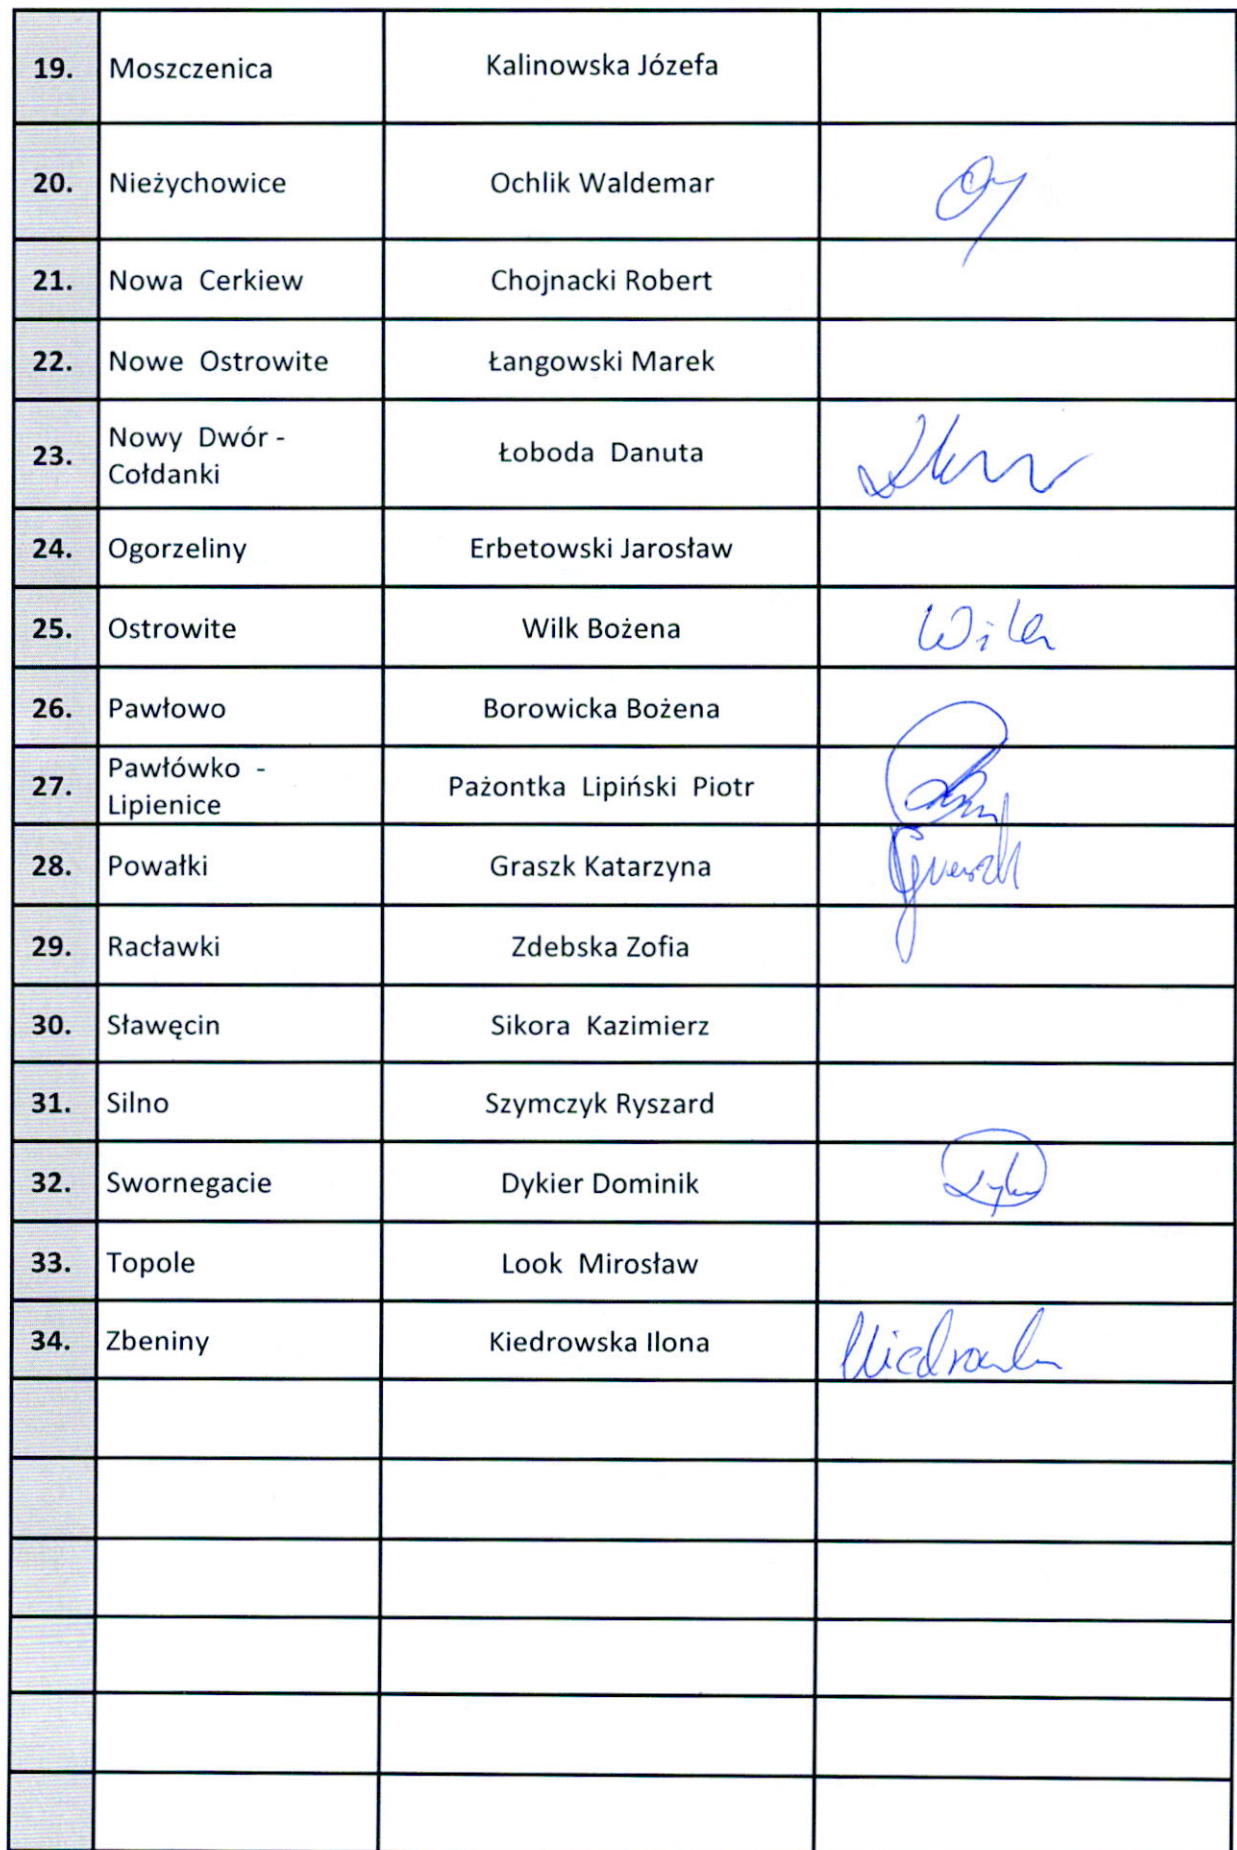 19. Moszczenica Kalinowska Józefa
20. Nieżychowice Ochlik Waldemar
21. Nowa Cerkiew Chojnacki Robert
22. Nowe Ostrowite Łangowski Marek
23. Nowy Dwór - Łoboda Danuta
Cołdanki
24. Ogorzeliny Erbetowski Jarosław
25. Ostrowite Wilk Bożena Wilk
26. Pawłowo Borowicka Bożena
27. Pawłówko - Pażontka Lipiński Piotr
Lipienice
28. Powałki Graszk Katarzyna Graszk
29. Racławki Zdebska Zofia
30. Sławęcin Sikora Kazimierz
31. Silno Szymczyk Ryszard
32. Swornegacie Dykier Dominik
33. Topole Look Mirosław
34. Zbeniny Kiedrowska Ilona